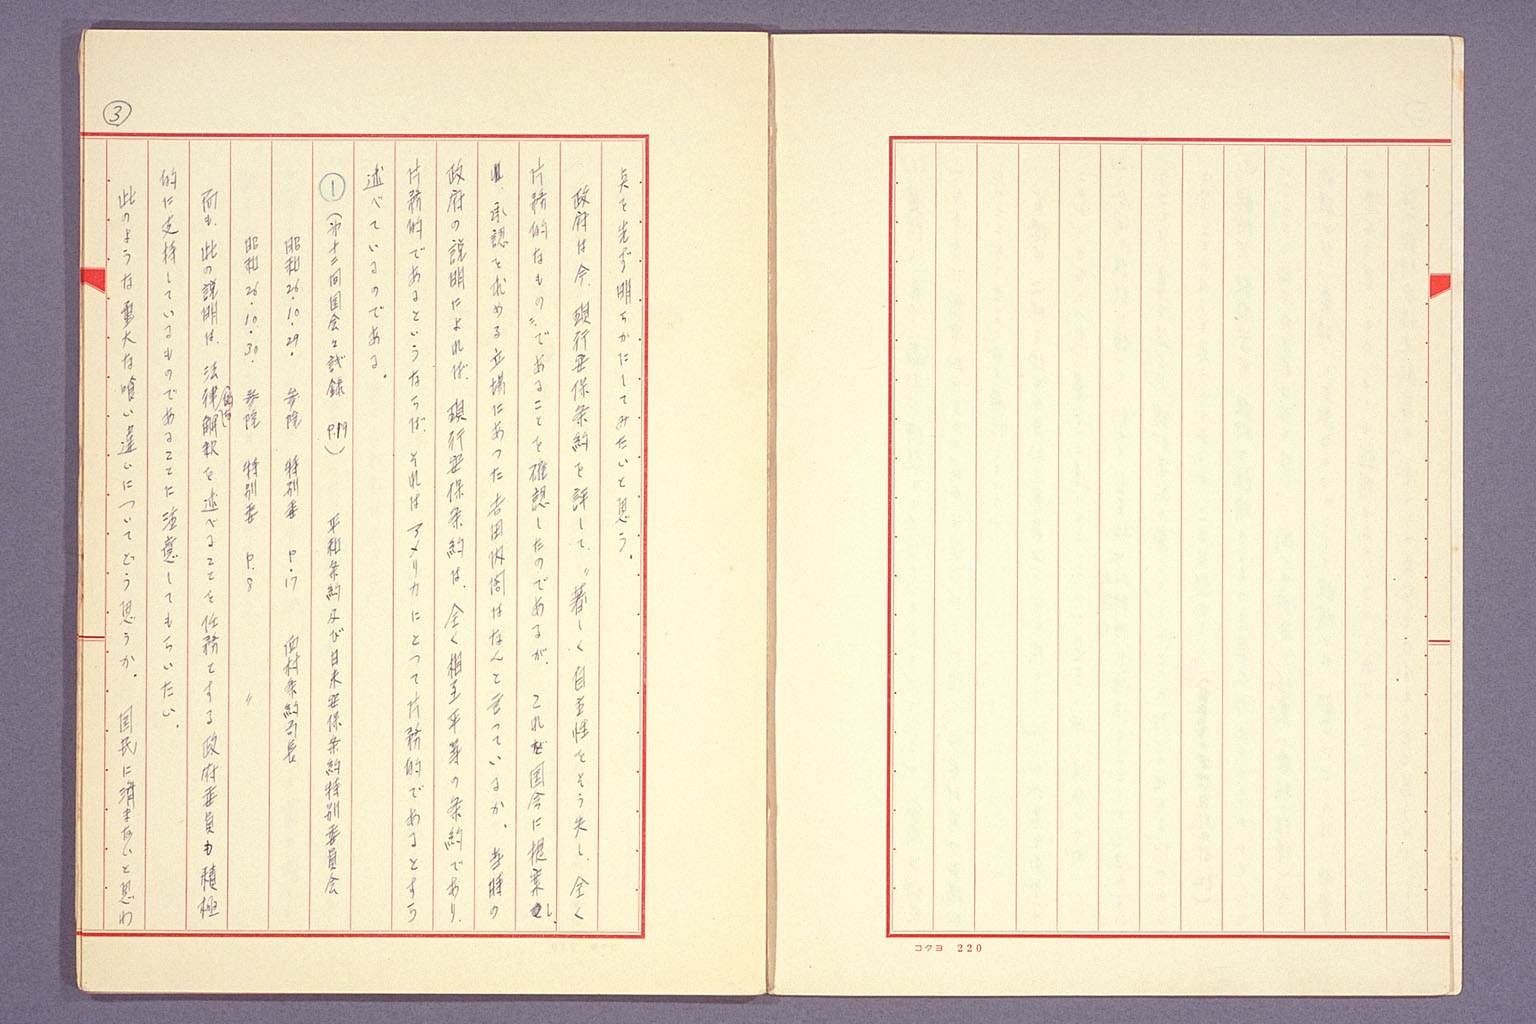 ③
点を先ず明らかにしてみたいと思う。
政府は今、現行安保条約を評して、〃著しく自主性をそう失し、全く
片務的なもの〃であることを確認したのであるが、これを国会に提案し、
承認を求める立場にあった吉田内閣はなんと言っているか。当時の
政府の説明によれば、現行安保条約は、全く相互平等の条約であり、
片務的であるというならば、それはアメリカにとって片務的であるとすら
述べているのである。
① (第十二回国会会議録 P.19) 平和条約及び日米安保条約特別委員会
昭和26.10.29. 参院 特別委 P.17 西村条約局長
昭和26.10.30. 参院 特別委 P.8 〃
而も、此の説明は、法律解釈を述べることを任務とする政府委員も積極
的に支持しているものであることに注意してもらいたい。
此のような重大な喰い違いについてどう思うか。国民に済まないと思わ
コクヨ 220